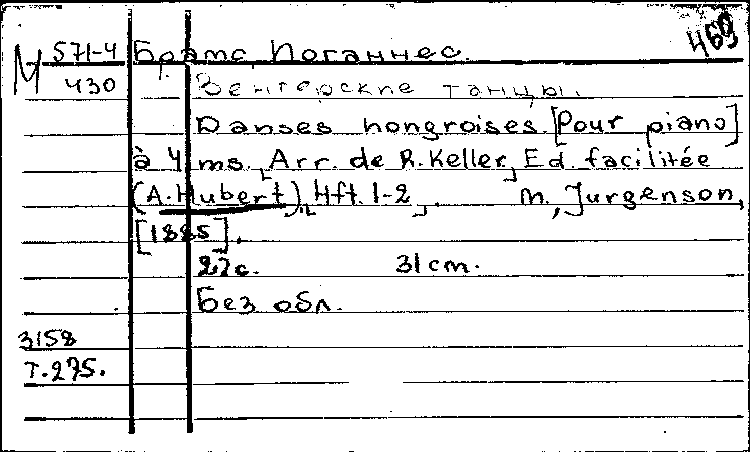 469
М 571-4 Брамс, Иоганнес.
430 Венгерские танцы.
Danses hongroises [Pour piano]
à 4 ms. [Arr. de R. Keller] Ed. facilitée
(A. Hubert), [Hft. 1-2]. M., Jurgenson,
[1885].
27с. 31 cm.
Без обл.
3158
Т.275.